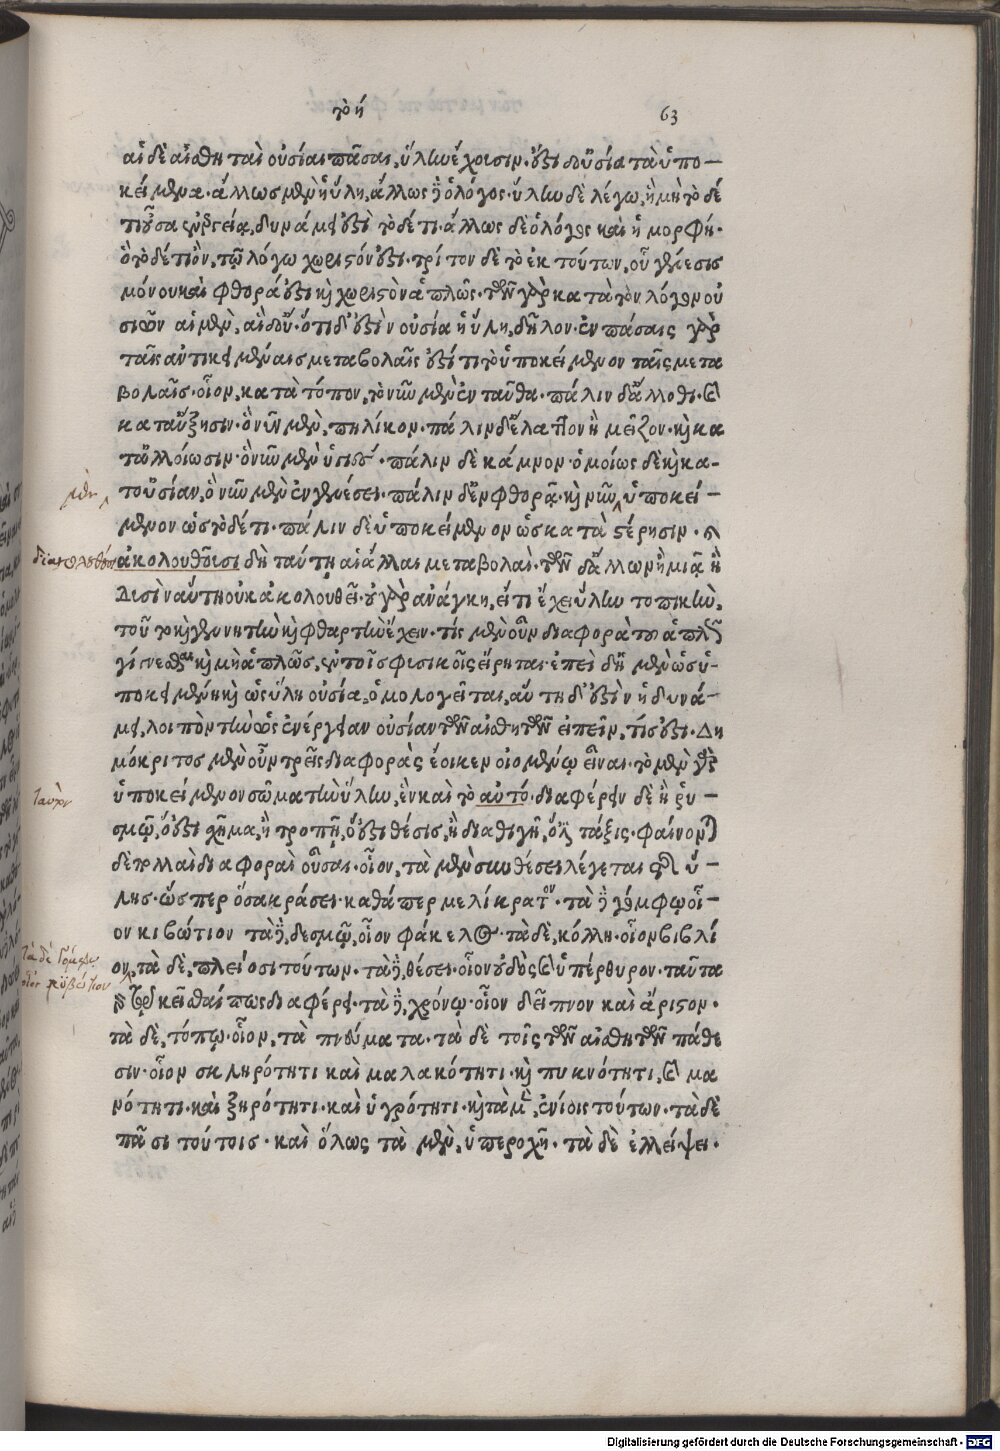 τὸ ή
63
αἱ δὲ αἰσθηταὶ οὐσίαι πᾶσαι, ὕλην ἔχουσιν. ἔστι δ' οὐσία τὸ ὑπο-
κείμενον. ἄλλως μὲν ἡ ὕλη, ἄλλως δὲ ὁ λόγος. ὕλην δὲ λέγω, ἣ μὴ τόδε
τι οὖσα ἐνεργείᾳ, δυνάμει ἐστὶ τόδε τι. ἄλλως δὲ ὁ λόγος καὶ ἡ μορφή.
ὃ τόδε τι ὂν, τῷ λόγῳ χωριστόν ἐστι. τρίτον δὲ τὸ ἐκ τούτων, οὗ γένεσις
μόνου καὶ φθορά ἐστι καὶ χωριστὸν ἁπλῶς. τῶν γὰρ κατὰ τὸν λόγον οὐ
σιῶν αἱ μὲν, αἱ δ' οὔ. ὅτι δ' ἐστὶν οὐσία ἡ ὕλη, δῆλον. ἐν πάσαις γὰρ
ταῖς ἀντικειμέναις μεταβολαῖς ἐστί τι τὸ ὑποκείμενον ταῖς μετα
βολαῖς. οἷον, κατὰ τόπον, τὸ νῦν μὲν ἐνταῦθα. πάλιν δ' ἄλλοθι. καὶ
κατ' αὔξησιν. ὃ νῦν μὲν, πηλίκον. πάλιν δ' ἔλαττον ἢ μεῖζον. καὶ κα
τ' ἀλλοίωσιν. ὃ νῦν μὲν ὑγιές. πάλιν δὲ κάμνον. ὁμοίως δὲ καὶ κα-
μὲν
τ' οὐσίαν, ὃ νῦν μὲν ἐν γενέσει. πάλιν δ' ἐν φθορᾷ. καὶ νῦν, ὑποκεί-
μενον ὡς τόδε τι. πάλιν δὲ ὑποκείμενον ὡς κατὰ στέρησιν. καὶ
ἀκολουθοῦσι δὴ ταύτῃ αἱ ἄλλαι μεταβολαί. τῶν δ' ἄλλων ἢ μιᾷ ἢ
δυσὶν αὕτη οὐκ ἀκολουθεῖ. οὐ γὰρ ἀνάγκη, εἴ τι ἔχει ὕλην τοπικὴν,
τοῦτο καὶ γεννητὴν καὶ φθαρτὴν ἔχειν. τίς μὲν οὖν διαφορὰ τοῦ ἁπλῶς
γίνεσθαι καὶ μὴ ἁπλῶς, ἐν τοῖς φυσικοῖς εἴρηται. ἐπεὶ δ' ἡ μὲν ὡς ὑ-
ποκειμένη καὶ ὡς ὕλη οὐσία, ὁμολογεῖται, αὕτη δ' ἐστὶν ἡ δυνά-
μει, λοιπὸν τὴν ὡς ἐνέργειαν οὐσίαν τῶν αἰσθητῶν εἰπεῖν, τίς ἐστι. Δη
μόκριτος μὲν οὖν τρεῖς διαφορὰς ἔοικεν οἰομένῳ εἶναι. τὸ μὲν γὰρ
ὑποκείμενον σῶμα τὴν ὕλην, ἓν καὶ τὸ αὐτό. διαφέρειν δὲ ἢ ῥυ-
ταὐτὸν
σμῷ, ὅ ἐστι σχῆμα, ἢ τροπῇ, ὅ ἐστι θέσις, ἢ διαθιγῇ, ὅ ἐστι τάξις. φαίνονται
δὲ πολλαὶ διαφοραὶ οὖσαι. οἷον, τὰ μὲν συνθέσει λέγεται τῆς ὕ-
λης. ὥσπερ ὅσα κράσει. καθάπερ μελίκρατον. τὰ δὲ γόμφῳ οἷ-
ον κιβώτιον τὰ δὲ, δεσμῷ, οἷον φάκελος. τὰ δὲ, κόλλῃ. οἷον βιβλί
τὰ δὲ γόμφῳ
οἷον κιβώτιον
ον, τὰ δὲ, πλείοσι τούτων. τὰ δὲ, θέσει. οἷον οὐδὸς καὶ ὑπέρθυρον. ταῦτα
γὰρ τῷ κεῖσθαί πως διαφέρει. τὰ δὲ, χρόνῳ. οἷον δεῖπνον καὶ ἄριστον.
τὰ δὲ, τόπῳ. οἷον, τὰ πνεύματα. τὰ δὲ τοῖς τῶν αἰσθητῶν πάθε
σιν. οἷον σκληρότητι καὶ μαλακότητι. καὶ πυκνότητι, καὶ μα
νότητι. καὶ ξηρότητι. καὶ ὑγρότητι. καὶ τὰ μὲν, ἐνίοις τούτων. τὰ δὲ
πᾶσι τούτοις. καὶ ὅλως τὰ μὲν, ὑπεροχῇ. τὰ δὲ ἐλλείψει.
Digitalisierung gefördert durch die Deutsche Forschungsgemeinschaft - DFG